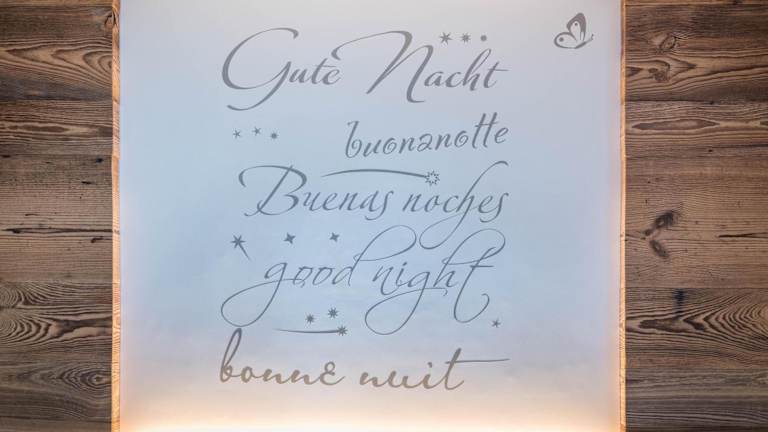 Gute Nacht
buonanotte
Buenas noches
good night
bonne nuit